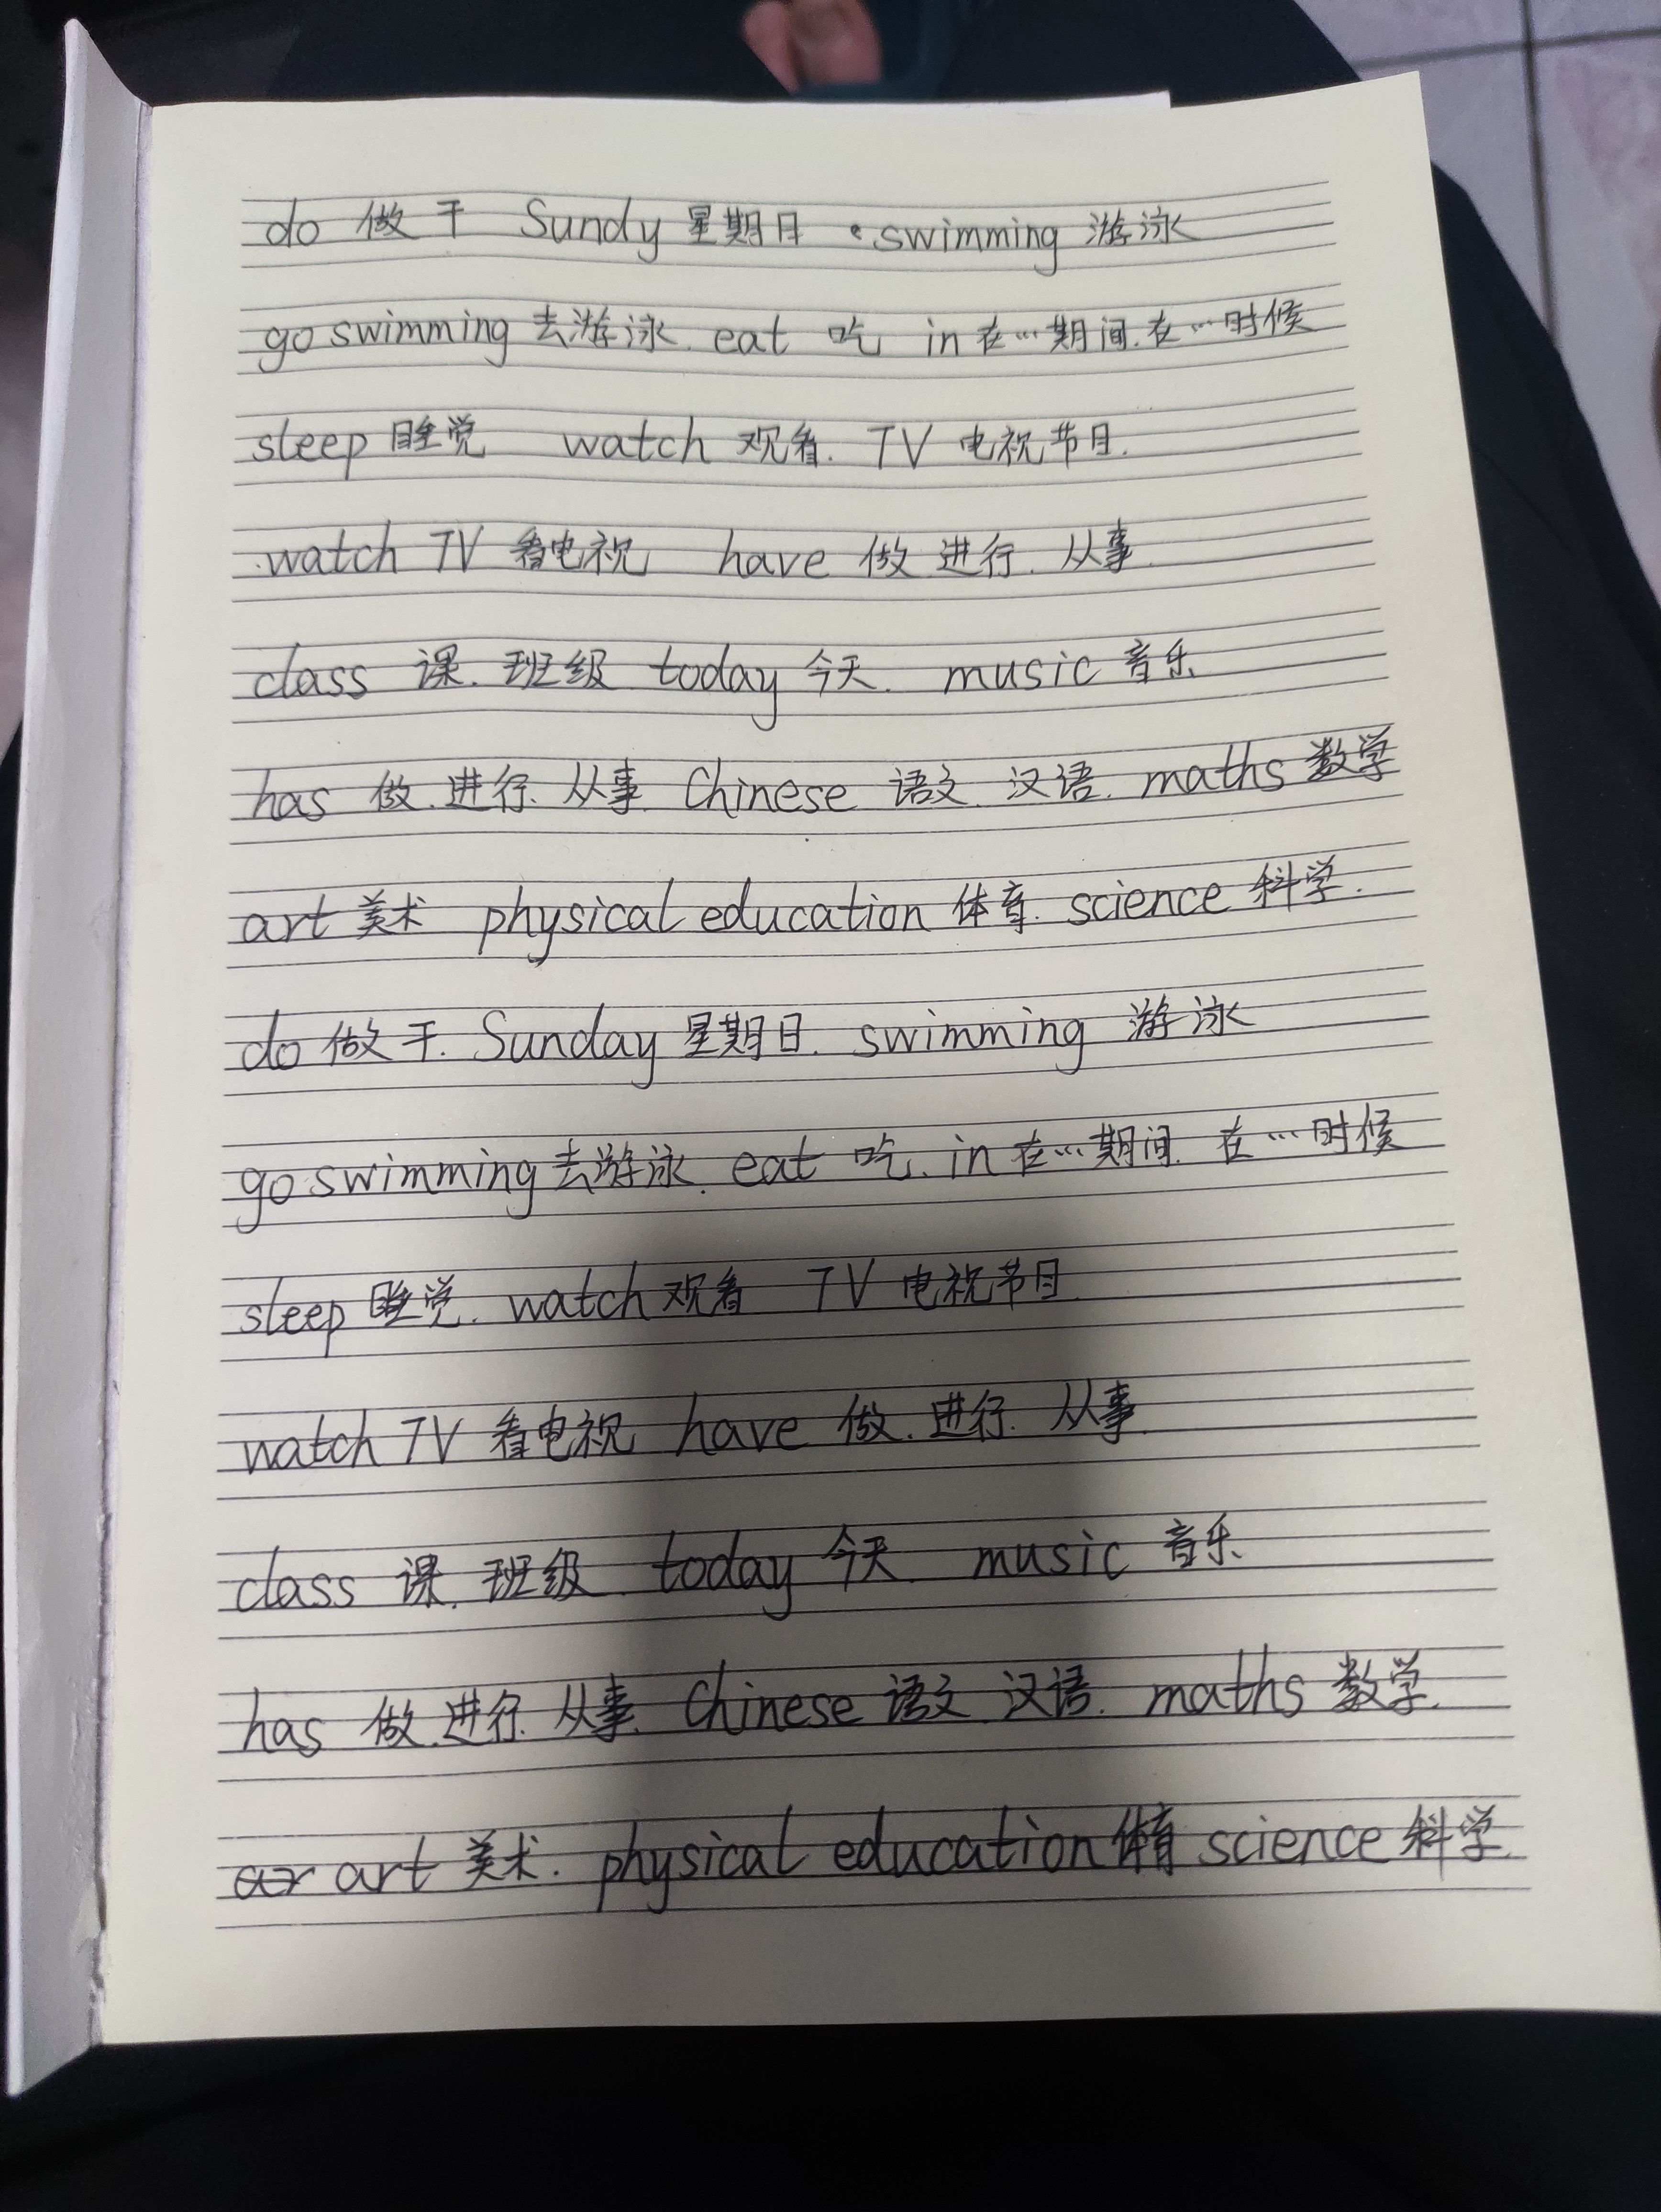 do 做 干 Sundy 星期日 swimming 游泳
go swimming 去游泳. eat 吃 in 在…期间.在…时候
sleep 睡觉 watch 观看. TV 电视节目.
watch TV 看电视 have 做 进行. 从事.
class 课. 班级 today 今天. music 音乐
has 做.进行.从事. Chinese 语文.汉语. maths 数学
art 美术 physical education 体育. science 科学.
do 做干. Sunday 星期日. swimming 游泳
go swimming 去游泳. eat 吃. in 在…期间. 在…时候
sleep 睡觉. watch 观看 TV 电视节目.
watch TV 看电视 have 做.进行.从事.
class 课.班级. today 今天. music 音乐.
has 做.进行.从事. Chinese 语文.汉语. maths 数学.
ar art 美术. physical education 体育 science 科学.